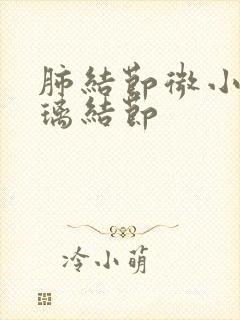 肺結節微小
璃結節
冷小萌